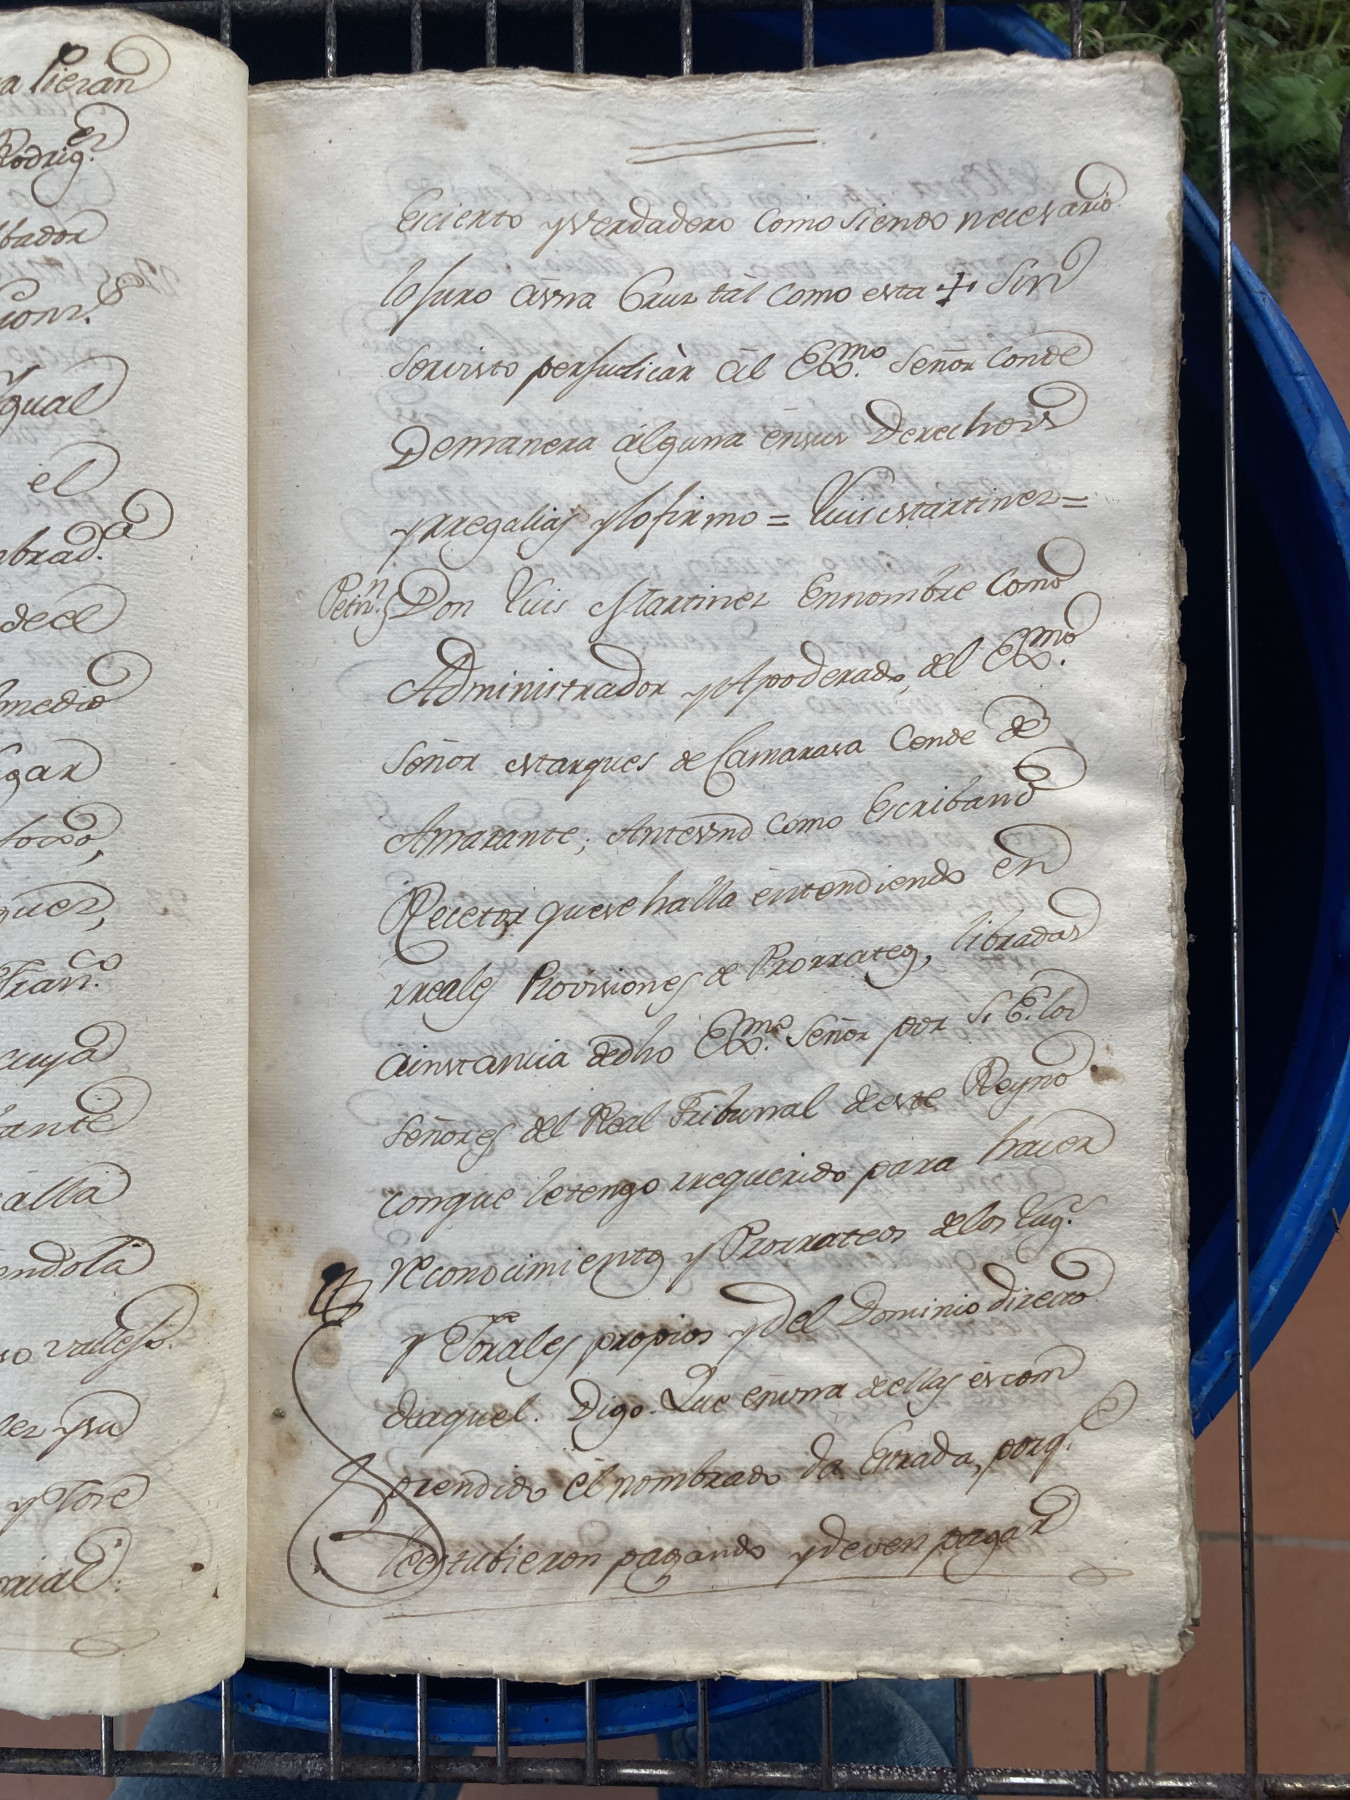 a Pieran
Rodrig.ez
Igual
el
brad.a
de el
medio
gar
todo,
quez,
Fran.co
cuya
ante
alla
endola
so vallejo.
y Jose
orial.
Escierto yverdadero Como siendo necesario
lo juro auna Cruz tal como esta + Sin
servisto perjudicar al Ex.mo Señor Conde
Demanera alguna ensus Derechos
yrregalias ylofirmo = Luis Martinez =
Petiz.n Don Luis Martinez Ennombre Como
Administrador yApoderado, del Ex.mo
Señor Marques de Camarasa Conde de
Amarante; Antevmd Como Escribano
Recetor quese halla entendiendo en
rreales Provisiones de Prorrateo, libradas
ainstancia dedho Ex.mo Señor por S. E. los
Señores del Real Tribunal deeste Reyno
conque letengo rrequerido para hacer
reconocimiento y Prorrateos delos Lug.s
y Forales propios ydel Dominio directo
deaquel. Digo. Que enuna dellas escom
prendido el nombrado da Estrada, porq.e
leestubieron pagando ydeven pagar